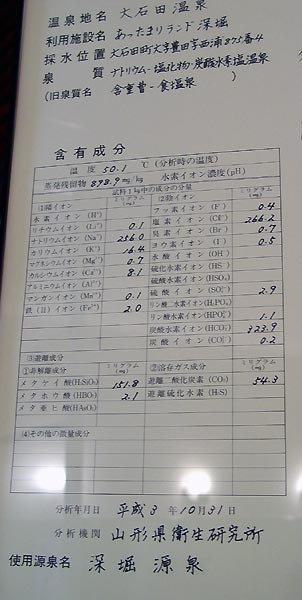 温泉地名 大石田温泉
利用施設名 あったまりランド深堀
採水位置 大石田町大字豊田字西浦875番4
泉質 ナトリウム-塩化物・炭酸水素塩温泉
(旧泉質名 含重曹-食塩泉)
含有成分
温度 50.1 ℃(分析時の温度)
蒸発残留物 898.9 mg/kg 水素イオン濃度(pH)
試料1kg中の成分の分量
(1)陽イオン ミリグラム(mg) (2)陰イオン ミリグラム(mg)
水素イオン(H⁺) フッ素イオン(F⁻) 0.4
リチウムイオン(Li⁺) 0.1 塩素イオン(Cl⁻) 266.2
ナトリウムイオン(Na⁺) 256.0 臭素イオン(Br⁻) 0.7
カリウムイオン(K⁺) 16.4 ヨウ素イオン(I⁻) 0.5
マグネシウムイオン(Mg²⁺) 0.7 水酸イオン(OH⁻)
カルシウムイオン(Ca²⁺) 8.1 硫化水素イオン(HS⁻)
アルミニウムイオン(Al³⁺) 硫酸水素イオン(HSO₄⁻)
マンガンイオン(Mn²⁺) 0.1 硫酸イオン(SO₄²⁻) 2.9
鉄(II)イオン(Fe²⁺) 2.0 リン酸二水素イオン(H₂PO₄⁻)
リン酸水素イオン(HPO₄²⁻) 1.1
炭酸水素イオン(HCO₃⁻) 323.9
炭酸イオン(CO₃²⁻) 0.2
(3)遊離成分
①非解離成分 ミリグラム(mg) ②溶存ガス成分 ミリグラム(mg)
メタケイ酸(H₂SiO₃) 151.8 遊離二酸化炭素(CO₂) 54.3
メタホウ酸(HBO₂) 2.1 遊離硫化水素(H₂S)
メタ亜ヒ酸(HAsO₂)
(4)その他の微量成分
分析年月日 平成3年10月31日
分析機関 山形県衛生研究所
使用源泉名 深堀源泉